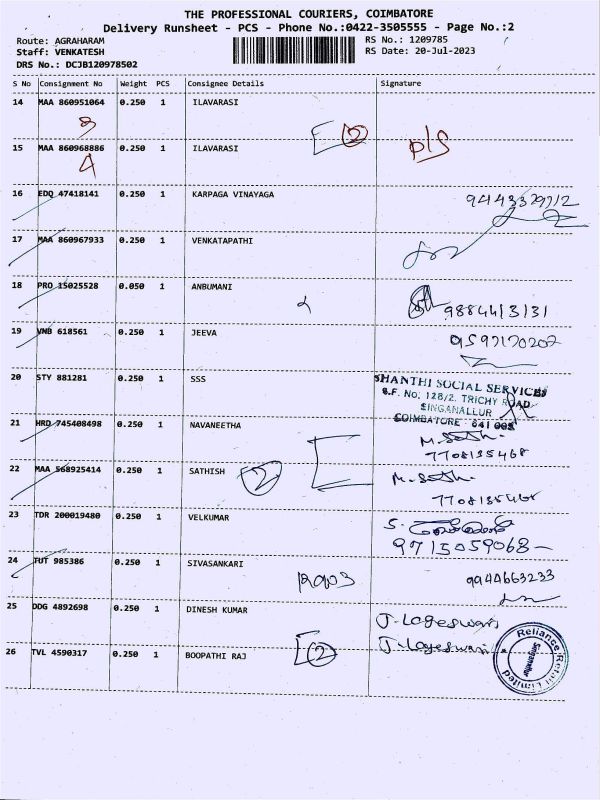 THE PROFESSIONAL COURIERS, COIMBATORE
Delivery Runsheet - PCS - Phone No.:0422-3505555 - Page No.:2
Route: AGRAHARAM RS No.: 1209785
Staff: VENKATESH RS Date: 20-Jul-2023
DRS No.: DCJB120978502
S No Consignment No Weight PCS Consignee Details Signature
14 MAA 860951064 0.250 1 ILAVARASI
3 2
15 MAA 860968886 0.250 1 ILAVARASI P/S
4
16 EDQ 47418141 0.250 1 KARPAGA VINAYAGA
17 MAA 860967933 0.250 1 VENKATAPATHI
18 PRO 15025528 0.050 1 ANBUMANI
9884413131
19 VNB 618561 0.250 1 JEEVA 9597170207
20 STY 881281 0.250 1 SSS SHANTHI SOCIAL SERVICES
S.F. No. 128/2. TRICHY ROAD
SINGANALLUR
COIMBATORE - 641 005
21 HRD 745408498 0.250 1 NAVANEETHA M. Sath.
7708135468
22 MAA 568925414 0.250 1 SATHISH 2 M. Sath.
7708135468
23 TDR 200019480 0.250 1 VELKUMAR S.
9715059068
24 TUT 985386 0.250 1 SIVASANKARI 9944663233
25 DDG 4892698 0.250 1 DINESH KUMAR J. Logeswari
26 TVL 4590317 0.250 1 BOOPATHI RAJ 2 J. Logeswari
Reliance Retail Limited
Singanallur